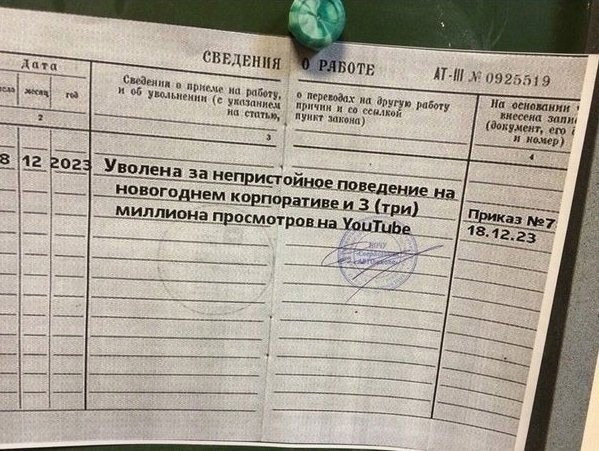 СВЕДЕНИЯ О РАБОТЕ
АТ-III № 0925519
Дата
месяц
год
Сведения о приеме на работу,
и об увольнении (с указанием
на статью,
о переводах на другую работу
причин и со ссылкой
пункт закона)
На основании
внесена
(документ, его
и номер)
2
3
4
8 12 2023
Уволена за непристойное поведение на
новогоднем корпоративе и 3 (три)
миллиона просмотров на YouTube
Приказ №7
18.12.23